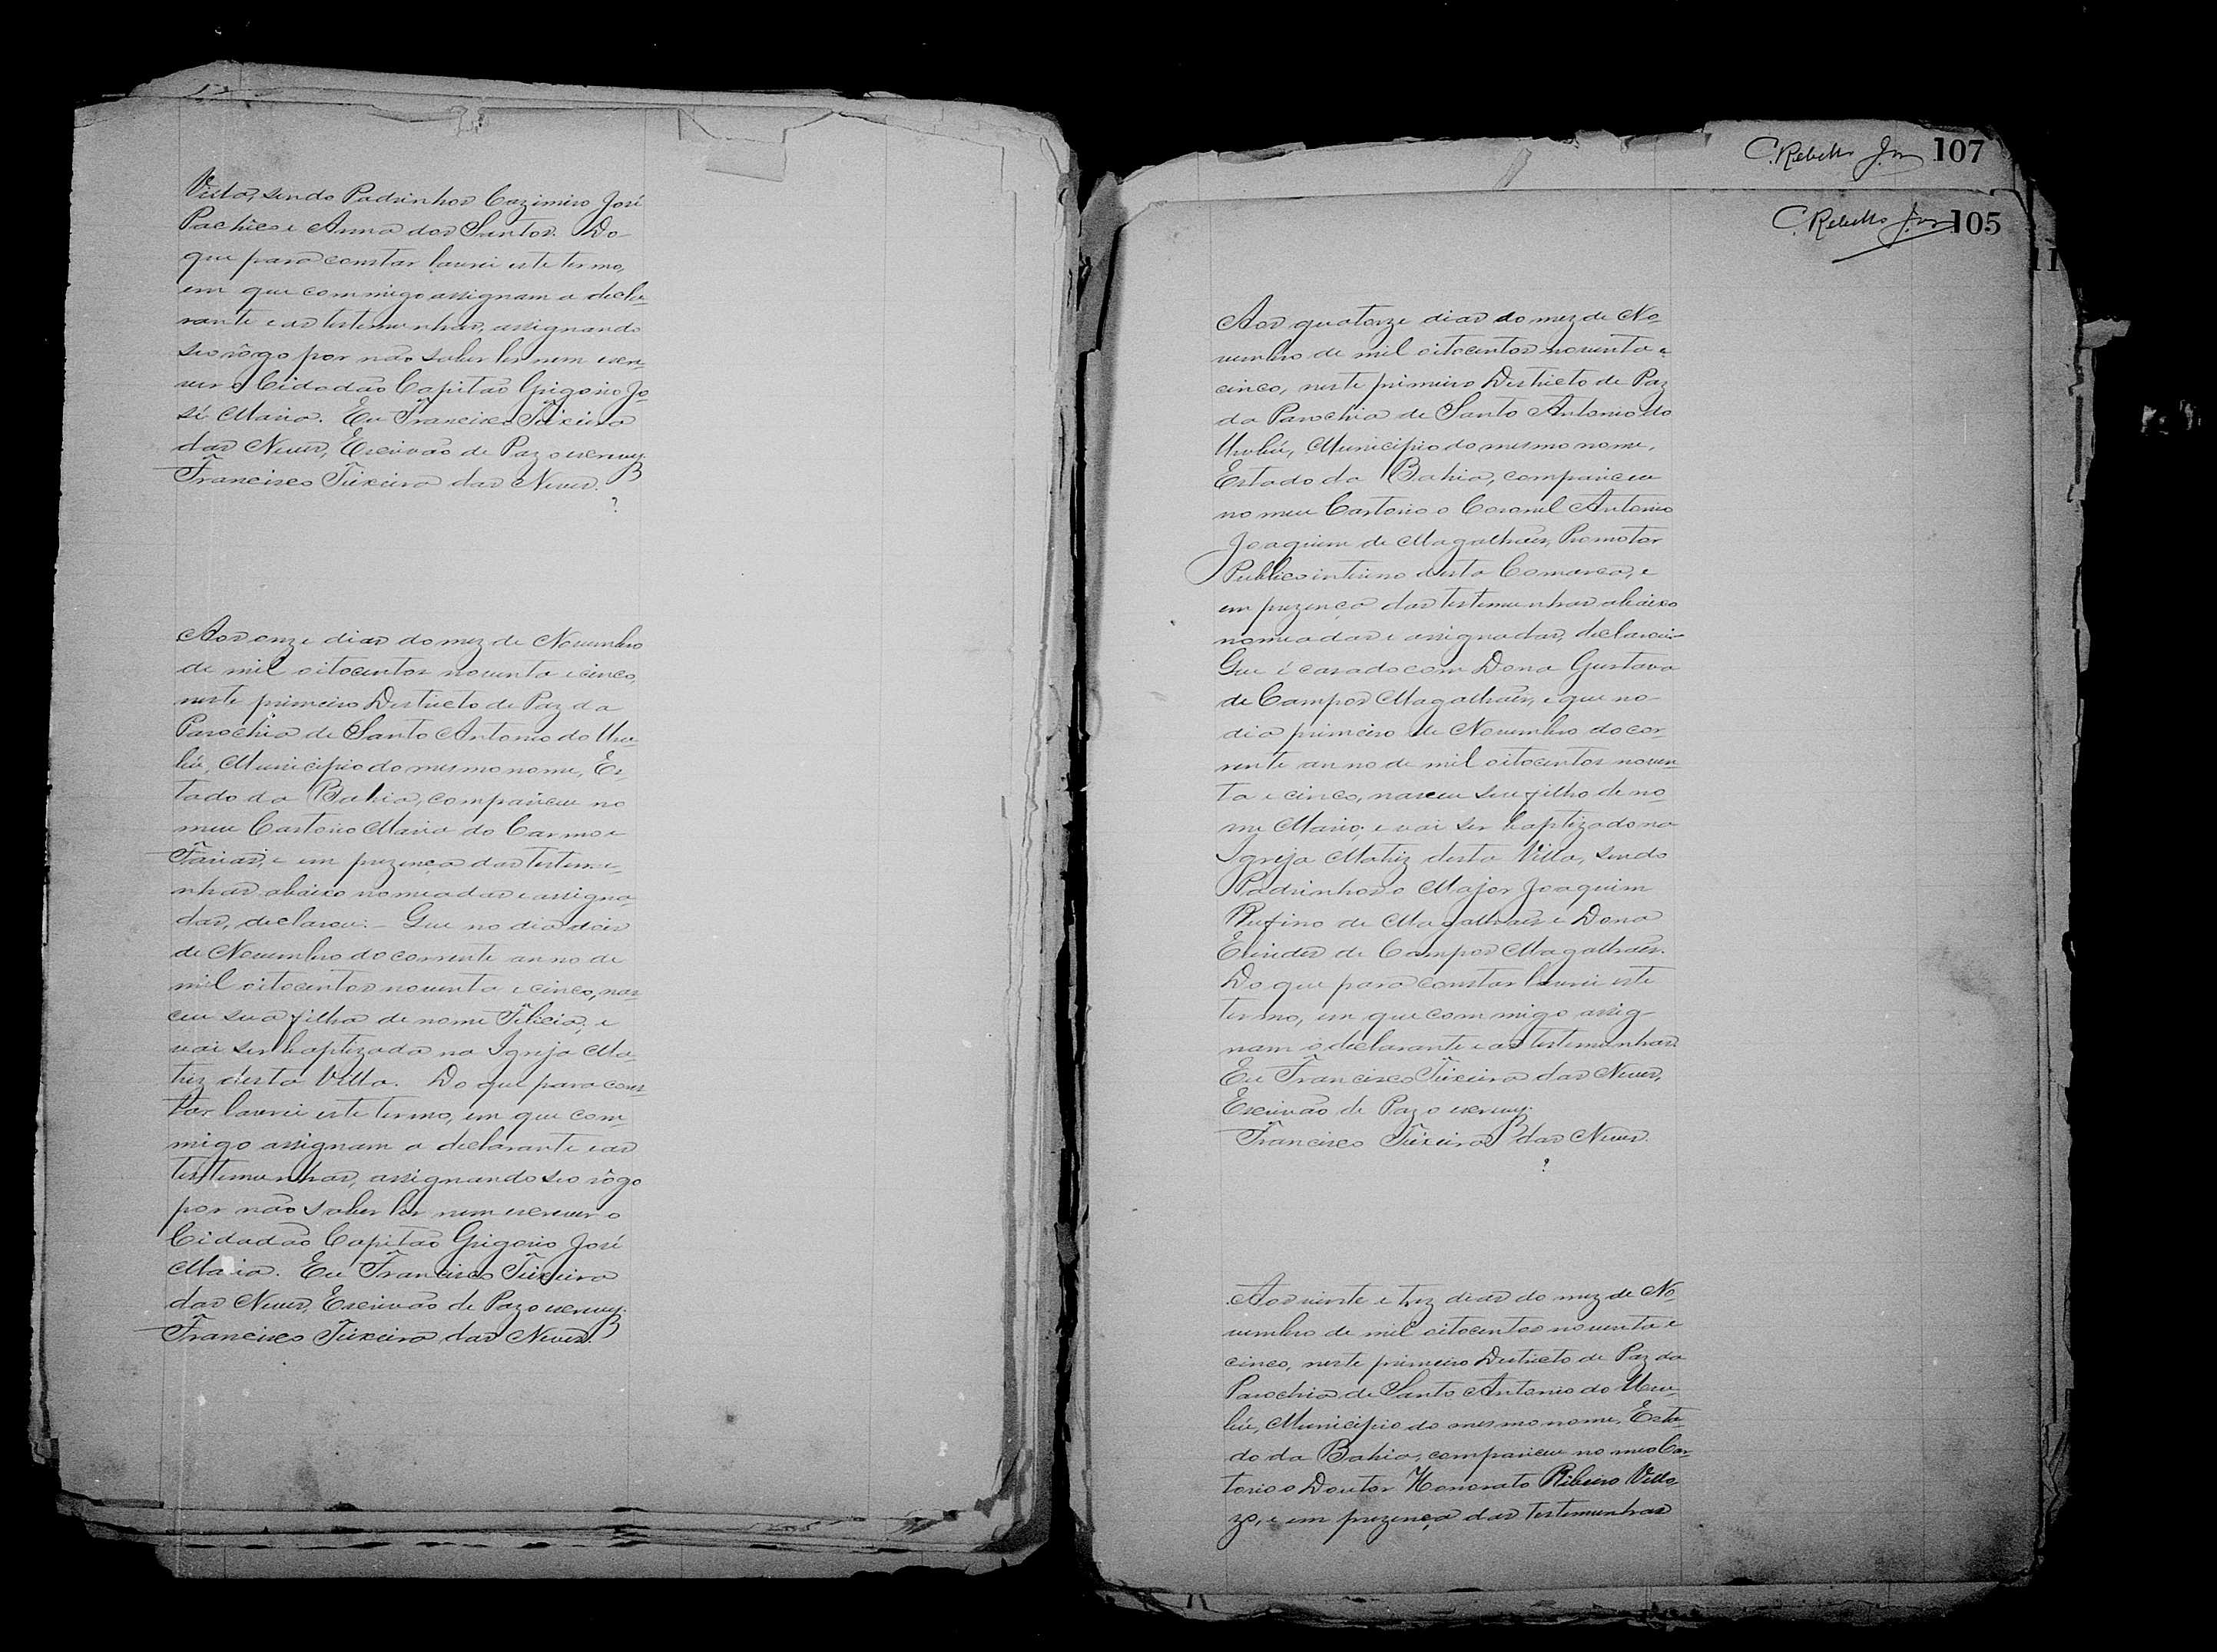 Vista, sendo Padrinhos Cazimiro José
Pachêco e Anna dos Santos. Do
que para constar lavrei este termo,
em que commigo assignam a decla-
rante e as testemunhas, assignando
seo rôgo por não saber ler nem escre-
ver o Cidadão Capitão Grigorio Jo-
sé Maia. Eu Francisco Teixeira
das Neves, Escrivão de Paz o escrevy.
Francisco Teixeira das Neves.
Aos onze dias do mez de Novembro
de mil oitocentos noventa e cinco,
neste primeiro Destricto de Paz da
Parochia de Santo Antonio do Uru-
bú, Municipio do mesmo nome, Es-
tado da Bahia, compareceu no
meu Cartorio Maria do Carmo e
Farias, e em prezença das testemu-
nhas abaixo nomeadas e assigna-
das, declarou:- Que no dia dois
de Novembro do corrente anno de
mil oitocentos noventa e cinco, nas-
ceu sua filha de nome Felicia; e
vai ser baptizada na Igreja Ma-
triz desta Villa. Do que para cons-
tar lavrei este termo, em que com-
migo assignam a declarante e as
testemunhas, assignando seo rôgo
por não saber ler nem escrever o
Cidadão Capitão Grigorio José
Maia. Eu Francisco Teixeira
das Neves, Escrivão de Paz o escrevy.
Francisco Teixeira das Neves.
C. Rebello Jor 107
C. Rebello Jor 105
11
Aos quatorze dias do mez de No-
vembro de mil oitocentos noventa e
cinco, neste primeiro Destricto de Paz
da Parochia de Santo Antonio do
Urubú, Municipio do mesmo nome,
Estado da Bahia, compareceu
no meu Cartorio o Coronel Antonio
Joaquim de Magalhães, Promotor
Publico interino desta Comarca, e
em prezença das testemunhas abaixo
nomeadas e assignadas, declarou:-
Que é casado com Dona Gustava
de Campos Magalhães, e que no
dia primeiro de Novembro do cor-
rente anno de mil oitocentos noven-
ta e cinco, nasceu seu filho de no-
me Mario; e vai ser baptizado na
Igreja Matriz desta Villa, sendo
Padrinhos o Major Joaquim
Rufino de Magalhães e Dona
de Campos Magalhães.
Do que para constar lavrei este
termo, em que commigo assig-
nam o declarante e as testemunhas.
Eu Francisco Teixeira das Neves,
Escrivão de Paz o escrevy.
Francisco Teixeira das Neves.
Aos vinte e trez dias do mez de No-
vembro de mil oitocentos noventa e
cinco, neste primeiro Destricto de Paz da
Parochia de Santo Antonio do Uru-
bú, Municipio do mesmo nome, Esta-
do da Bahia, compareceu no meo Car-
torio o Doutor Honorato Ribeiro Vello-
zo, e em prezença das testemunhas